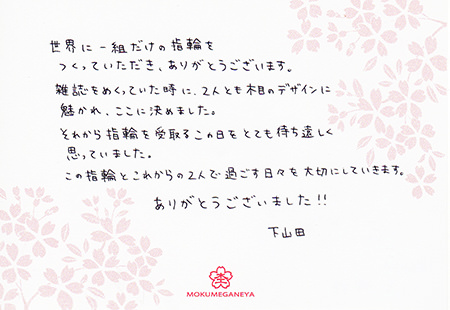 世界に一組だけの指輪を
つくっていただき、ありがとうございます。
雑誌をめくっていた時に、2人とも木目のデザインに
魅かれ、ここに決めました。
それから指輪を受取るこの日をとても待ち遠しく
思っていました。
この指輪とこれからの2人で過ごす日々を大切にしていきます。
ありがとうございました!!
下山田
MOKUMEGANEYA